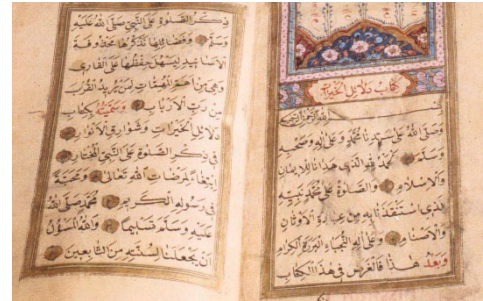 كتاب دلائل الخيرات
بسم الله الرحمن الرحيم
وصلى الله على سيدنا محمد وعلى اله وصحبه
وسلم الحمد لله الذي هدانا للايمان
والاسلام والصلوة على محمد نبيه
الذي استنقذنا به من عبادة الاوثان
والاصنام وعلى اله النجباء البررة الكرام
وبعد هذا فالغرض في هذا الكتاب
ذكر الصلوة على النبي صلى الله عليه
وسلم وفضائلها نذكرها محذوفة
الاسانيد ليسهل حفظها على القارئ
وهي من اهم المهمات لمن يريد القرب
من رب الارباب وسميته بكتاب
دلائل الخيرات وشوارق الانوار
في ذكر الصلوة على النبي المختار
ابتغاء لمرضات الله تعالى ومحبة
في رسوله الكريم محمد صلى الله
عليه وسلم تسليما والله المسؤل
ان يجعلنا لسنته من التابعين